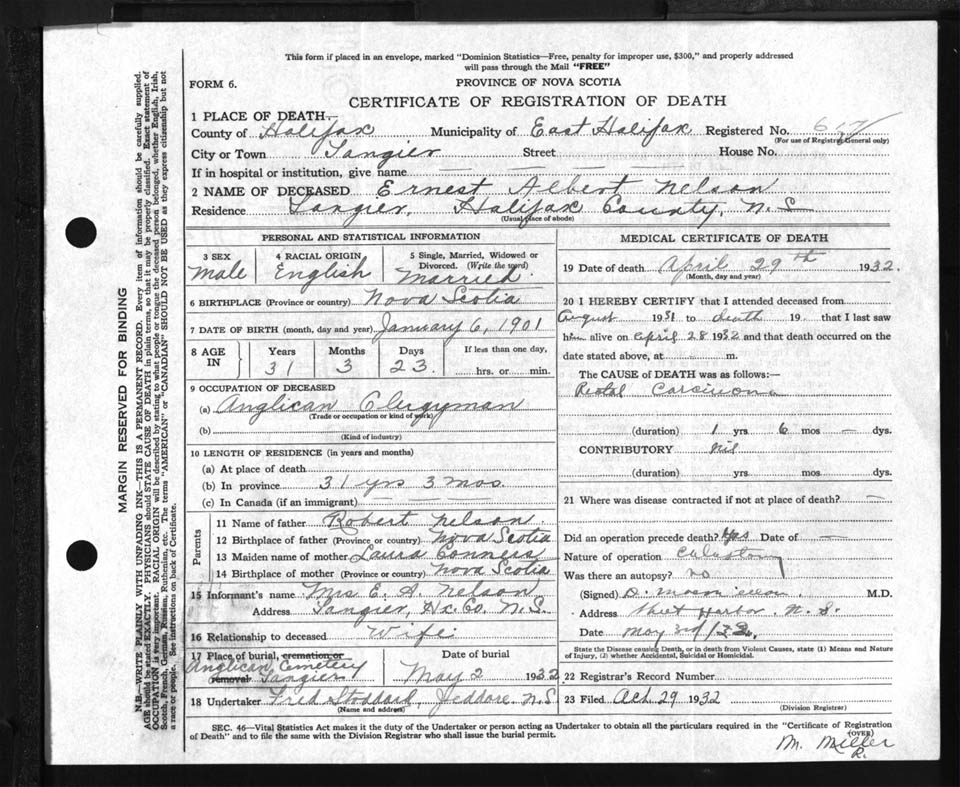 This form if placed in an envelope, marked "Dominion Statistics—Free, penalty for improper use, $300," and properly addressed
will pass through the Mail "FREE"
FORM 6.
PROVINCE OF NOVA SCOTIA
CERTIFICATE OF REGISTRATION OF DEATH
1 PLACE OF DEATH—
County of Halifax Municipality of East Halifax Registered No.
(For use of Registrar General only)
City or Town Tangier Street House No.
If in hospital or institution, give name
2 NAME OF DECEASED Ernest Albert Nelson
Residence Tangier, Halifax County, N.S
(Usual place of abode)
PERSONAL AND STATISTICAL INFORMATION
3 SEX 4 RACIAL ORIGIN 5 Single, Married, Widowed or
Divorced. (Write the word)
Male English Married
6 BIRTHPLACE (Province or country) Nova Scotia
7 DATE OF BIRTH (month, day and year) January 6, 1901
8 AGE IN Years Months Days If less than one day,
31 3 23 hrs. or min.
9 OCCUPATION OF DECEASED
(a) Anglican Clergyman
(Trade or occupation or kind of work)
(b)
(Kind of industry)
10 LENGTH OF RESIDENCE (in years and months)
(a) At place of death
(b) In province 31 yrs 3 mos
(c) In Canada (if an immigrant)
Parents
11 Name of father Robert Nelson
12 Birthplace of father (Province or country) Nova Scotia
13 Maiden name of mother Laura Conners
14 Birthplace of mother (Province or country) Nova Scotia
15 Informant's name Mrs E. A. Nelson
Address Tangier, Hx. Co. N.S.
16 Relationship to deceased Wife
17 Place of burial, cremation or removal Date of burial
Anglican Cemetery
Tangier May 2 1932
18 Undertaker Fred Stoddard, Jeddore. N.S
(Name and address)
MEDICAL CERTIFICATE OF DEATH
19 Date of death April 29th 1932.
(Month, day and year)
20 I HEREBY CERTIFY that I attended deceased from
August 1931 to death 19 that I last saw
him alive on April 28 1932 and that death occurred on the
date stated above, at m.
The CAUSE OF DEATH was as follows:
Rectal Carcinoma
(duration) 1 yrs 6 mos — dys.
CONTRIBUTORY nil
(duration) yrs mos dys.
21 Where was disease contracted if not at place of death? —
Did an operation precede death? Yes Date of —
Nature of operation
Was there an autopsy? no
(Signed) D. M.D.
Address Sheet Harbor. N. S.
Date May 3rd/32.
State the Disease causing Death, or in death from Violent Causes, state (1) Means and Nature
of Injury, (2) whether Accidental, Suicidal or Homicidal.
22 Registrar's Record Number
23 Filed 29 1932
(Division Registrar)
SEC. 46—Vital Statistics Act makes it the duty of the Undertaker or person acting as Undertaker to obtain all the particulars required in the "Certificate of Registration
of Death" and to file the same with the Division Registrar who shall issue the burial permit.
(OVER)
M. Miller
R.
MARGIN RESERVED FOR BINDING
N.B.—WRITE PLAINLY WITH UNFADING INK—THIS IS A PERMANENT RECORD. Every item of information should be carefully supplied.
AGE should be stated EXACTLY. PHYSICIANS should STATE CAUSE OF DEATH in plain terms, so that it may be properly classified. Exact statement of
OCCUPATION is very important. RACIAL ORIGIN will be described by stating to what people or tongue the deceased person belonged, whether English, Irish,
Scotch, French, German, Russian, Ruthenian, etc. The terms "AMERICAN" or "CANADIAN" SHOULD NOT BE USED as they express citizenship but not
a race or people. See instructions on back of Certificate.